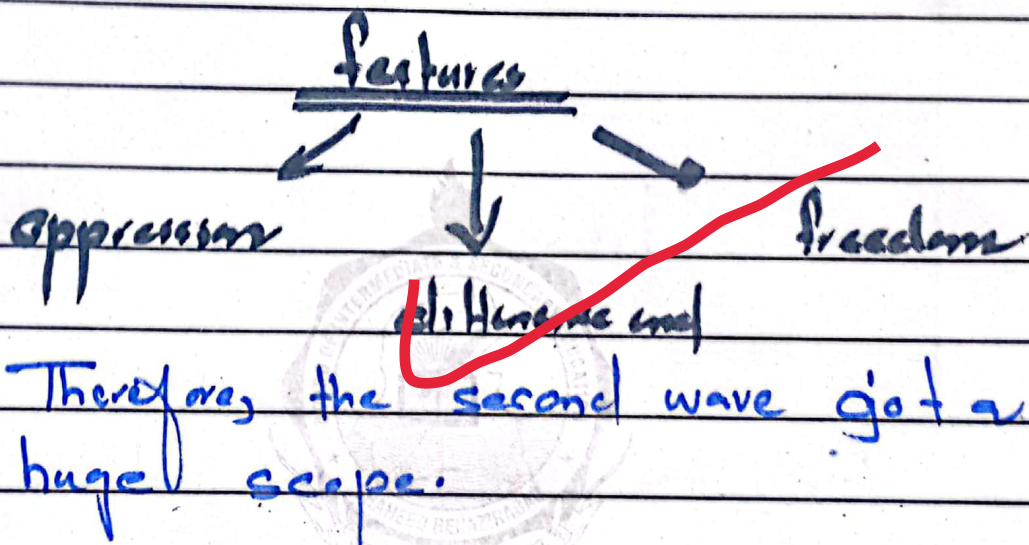 features
oppression
freedom
and
Therefore, the second wave got a
huge scope.